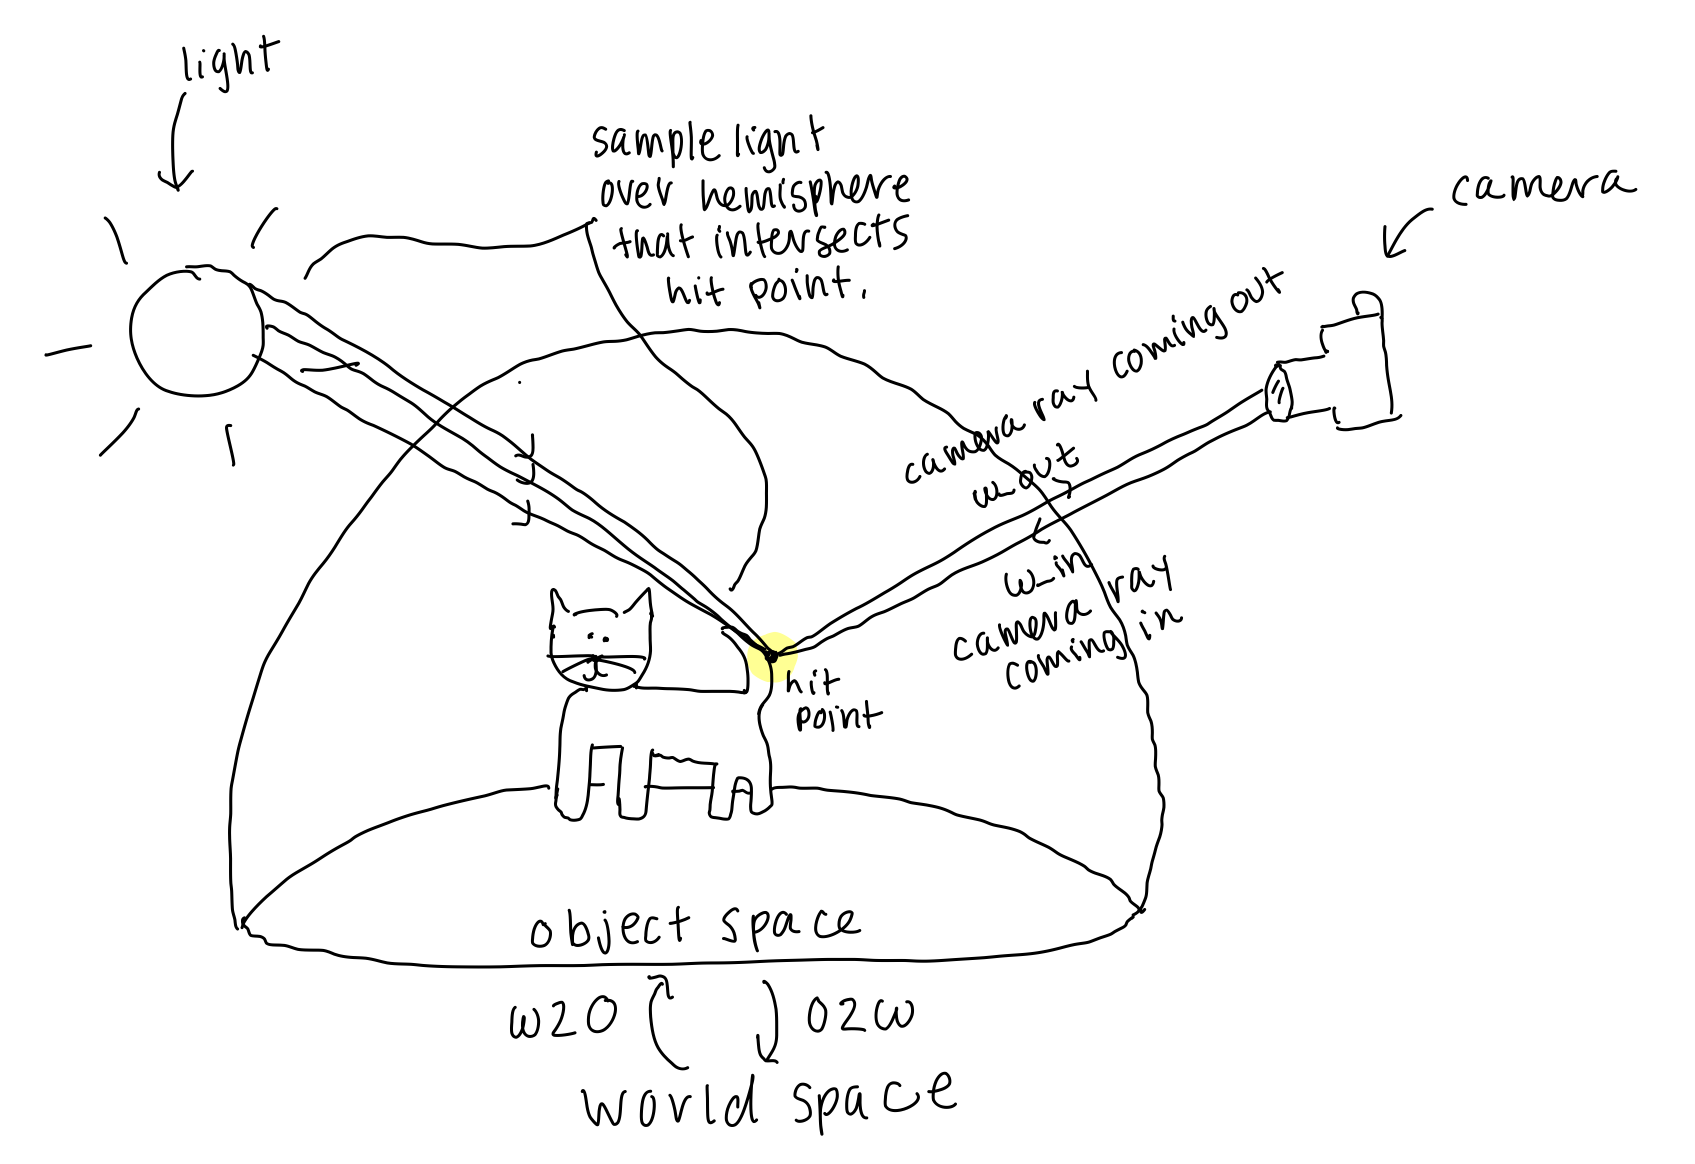 light
sample light
over hemisphere
that intersects
hit point.
camera
camera ray coming out
w_out
w_in
camera ray
coming in
hit
point
object space
w2o
o2w
world space